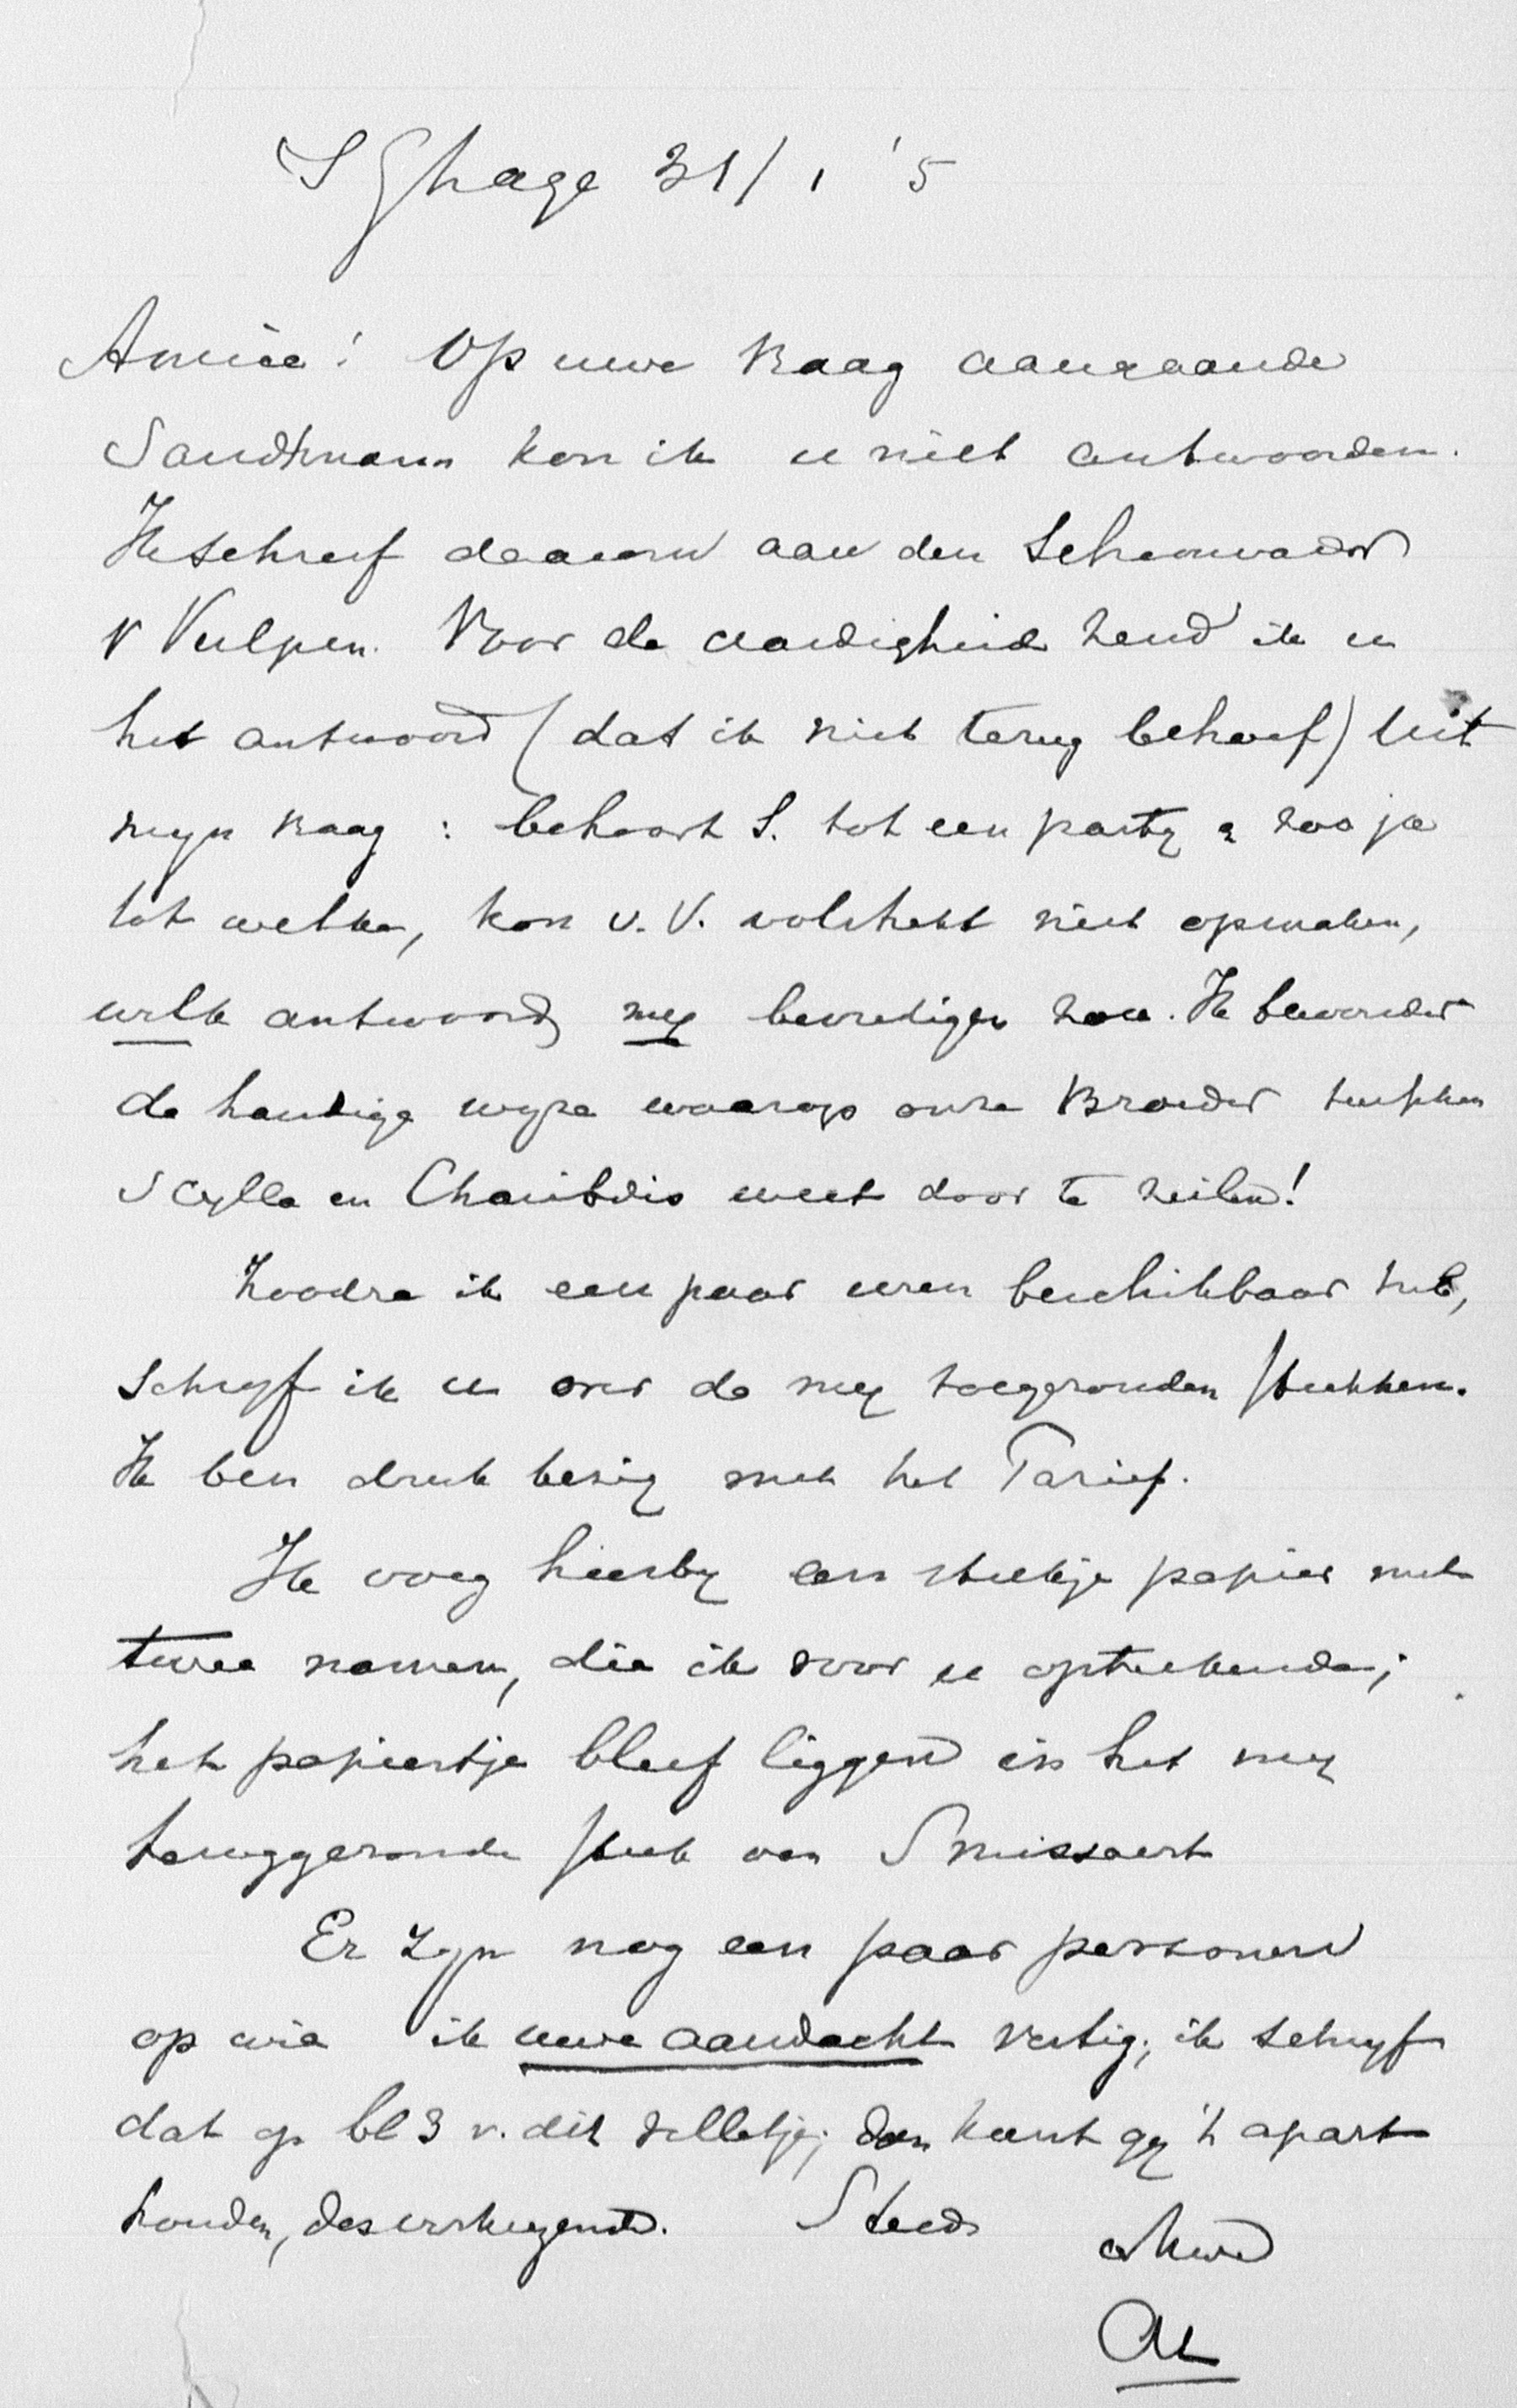 S Ghage 31/1 '5
Amice! Op uwe vraag aangaande
Sandtmann kon ik u niet antwoorden.
Ik schreef daarom aan den Schoonvader
v Vulpen. Voor de aardigheid zend ik u
het antwoord (dat ik niet terug behoef) Uit
mijn vraag: behoort S. tot een party & zoo ja
tot welke, kon v. V. volstrekt niet opmaken,
welk antwoord my bevredigen zou. Ik bewonder
de handige wyze waarop onze Broeder tusschen
Scylla en Charibdis weet door te zeilen!
Zoodra ik een paar uren beschikbaar heb,
schryf ik u over de my toegezonden stukken.
Ik ben druk bezig met het Tarief.
Ik voeg hierby een stukje papier met
twee namen, die ik voor u opteekende;
het papiertje bleef liggen in het my
teruggezonden stuk van Smissaert
Er zyn nog een paar personen
op wie ik uwe aandacht vestig; ik schryf
dat op bl 3 v. dit velletje; dan kunt gy 't apart
houden, desverkiezende. Steeds